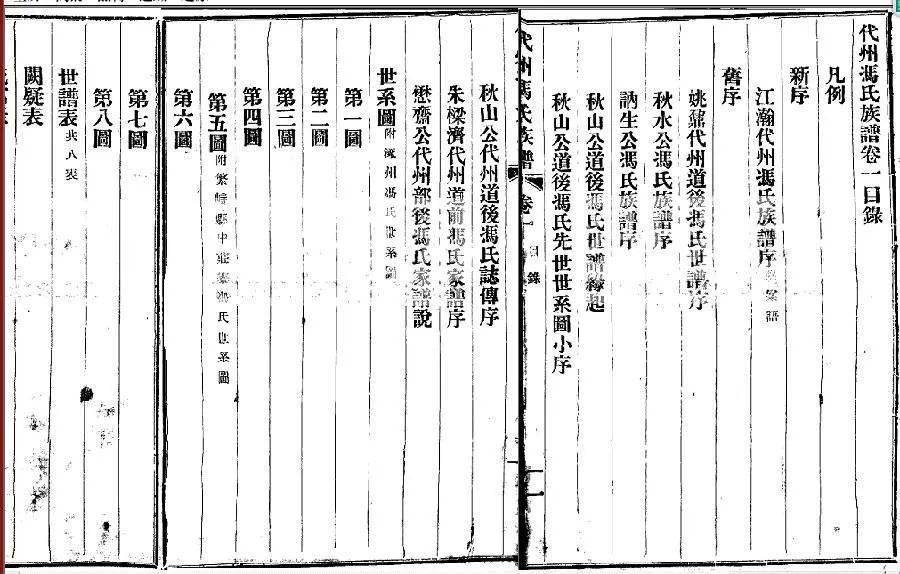 代州馮氏族譜卷一目錄
凡例
新序
江瀚代州馮氏族譜序
舊序
姚鼐代州道後馮氏世譜序
秋水公馮氏族譜序
訥生公馮氏族譜序
秋山公道後馮氏世譜緣起
秋山公道後馮氏先世世系圖小序
代州馮氏族譜 卷一 目錄
秋山公代州道後馮氏誌傳序
朱樑濟代州道前馮氏家譜序
懋齋公代州部後馮氏家譜說
世系圖附 州馮氏世系圖
第一圖
第二圖
第三圖
第四圖
第五圖附繁峙縣中莊寨馮氏世系圖
第六圖
第七圖
第八圖
世譜表共八表
闕疑表